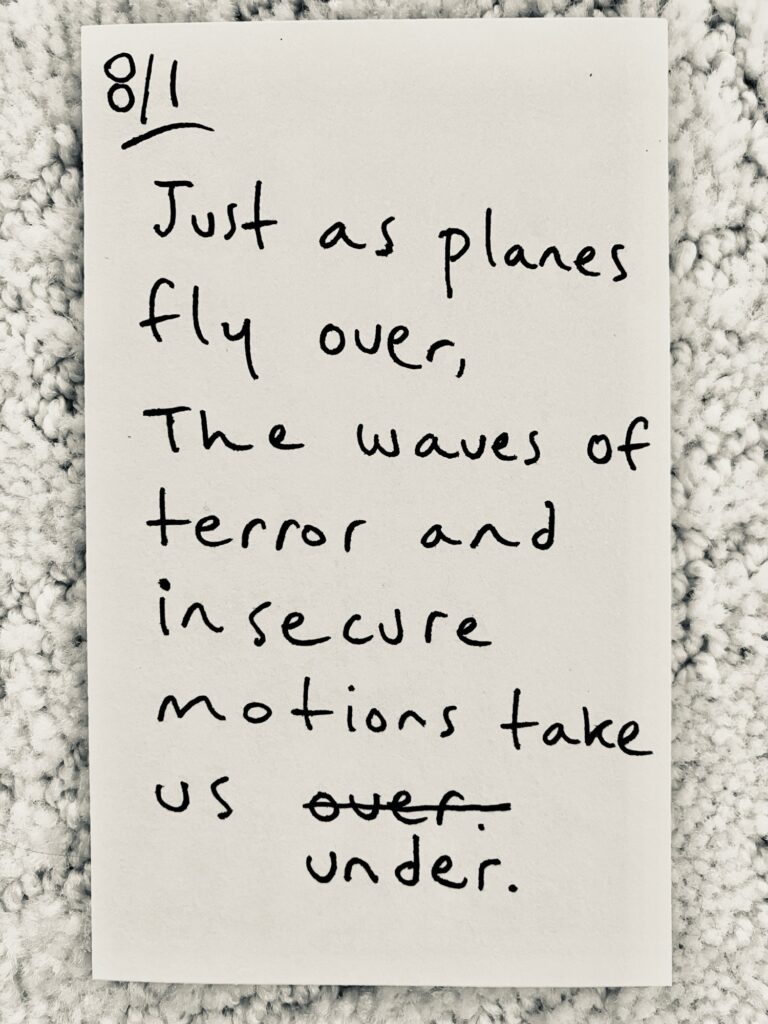 8/1
Just as planes
fly over,
The waves of
terror and
insecure
motions take
us over.
under.